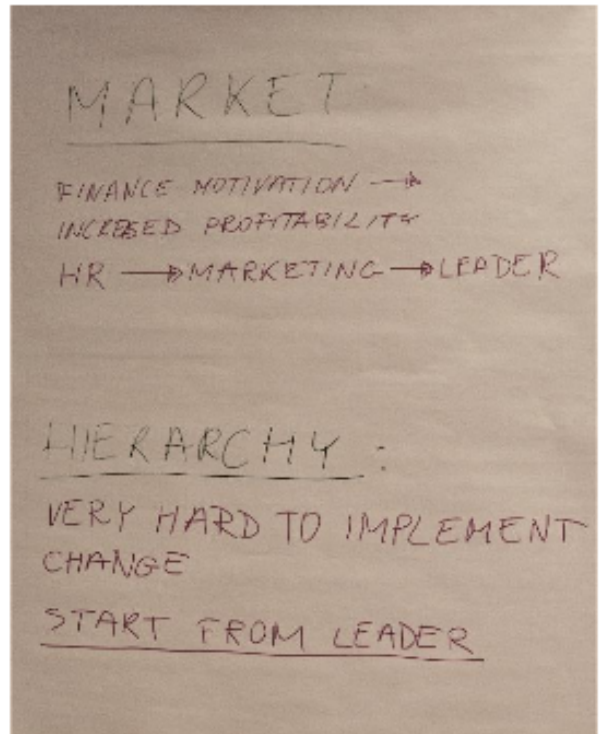 MARKET
FINANCE MOTIVATION →
INCREASED PROFITABILITY
HR → MARKETING → LEADER
HIERARCHY:
VERY HARD TO IMPLEMENT
CHANGE
START FROM LEADER